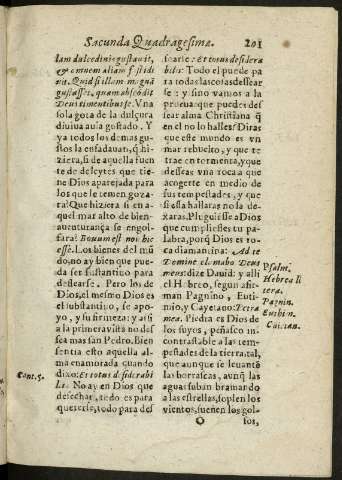 Sacunda Quadragesima.
201
lam dulcedinis gustauit,
& omnem aliam fastidiuit. Quid si illam magnã
gustasset, quam abscõdit
Deus timentibus se. Vna
sola gota de la dulçura
diuiua auia gustado. Y
ya todos los demas gustos la enfadauan, q̃ hiziera, si de aquella fuente de deleytes que tiene Dios aparejada para
los que le temen gozara? Que hiziera si en aquel mar alto de bienauenturança se engolfara? Bonum est nos hic
esse. Los bienes del mũdo, no ay bien que pueda ser sustantiuo para
dessearse. Pero los de
Dios, el mesmo Dios es
el substantiuo, se apoyo, y su firmeza: y assi
a la primera visita no dessea mas san Pedro. Bien
sentia esto aquella alma enamorada quando
dixo: Et totus desiderabilis. No ay en Dios que
desechar, todo es para
quererse, todo para dessearse: Et totus desiderabilis. Todo el puede para todas las cosas dessearse: y sino vamos a la
prueua. Que puede dessear alma Christiana q̃
en el no lo halles? Diras
que este mundo es vn
mar rebuelto, y que te
trae en tormenta, y que
desseas vna roca a que
acogerte en medio de
sus tempestades, y que
si essa hallaras no la dexaras. Pluguiesse a Dios
que cumpliesses tu palabra, porq̃ Dios es roca diamantina: Ad te
Domine clamabo Deus
meus: dize Dauid: y alli
el Hebreo, segun afirman Pagnino, Eutimio, y Cayetano: Petra
mea. Piedra es Dios de
los suyos, peñasco incontrastable a las tempestades de la tierra, tal,
que aunque se leuantẽ
las borrascas, aunq̃ las
aguas suban bramando
a las estrellas, soplen los
vientos, suenen los golO
los,
Cant. 5.
Psalm.
Hebrea litera.
Pagnin.
Euthin.
Caietan.